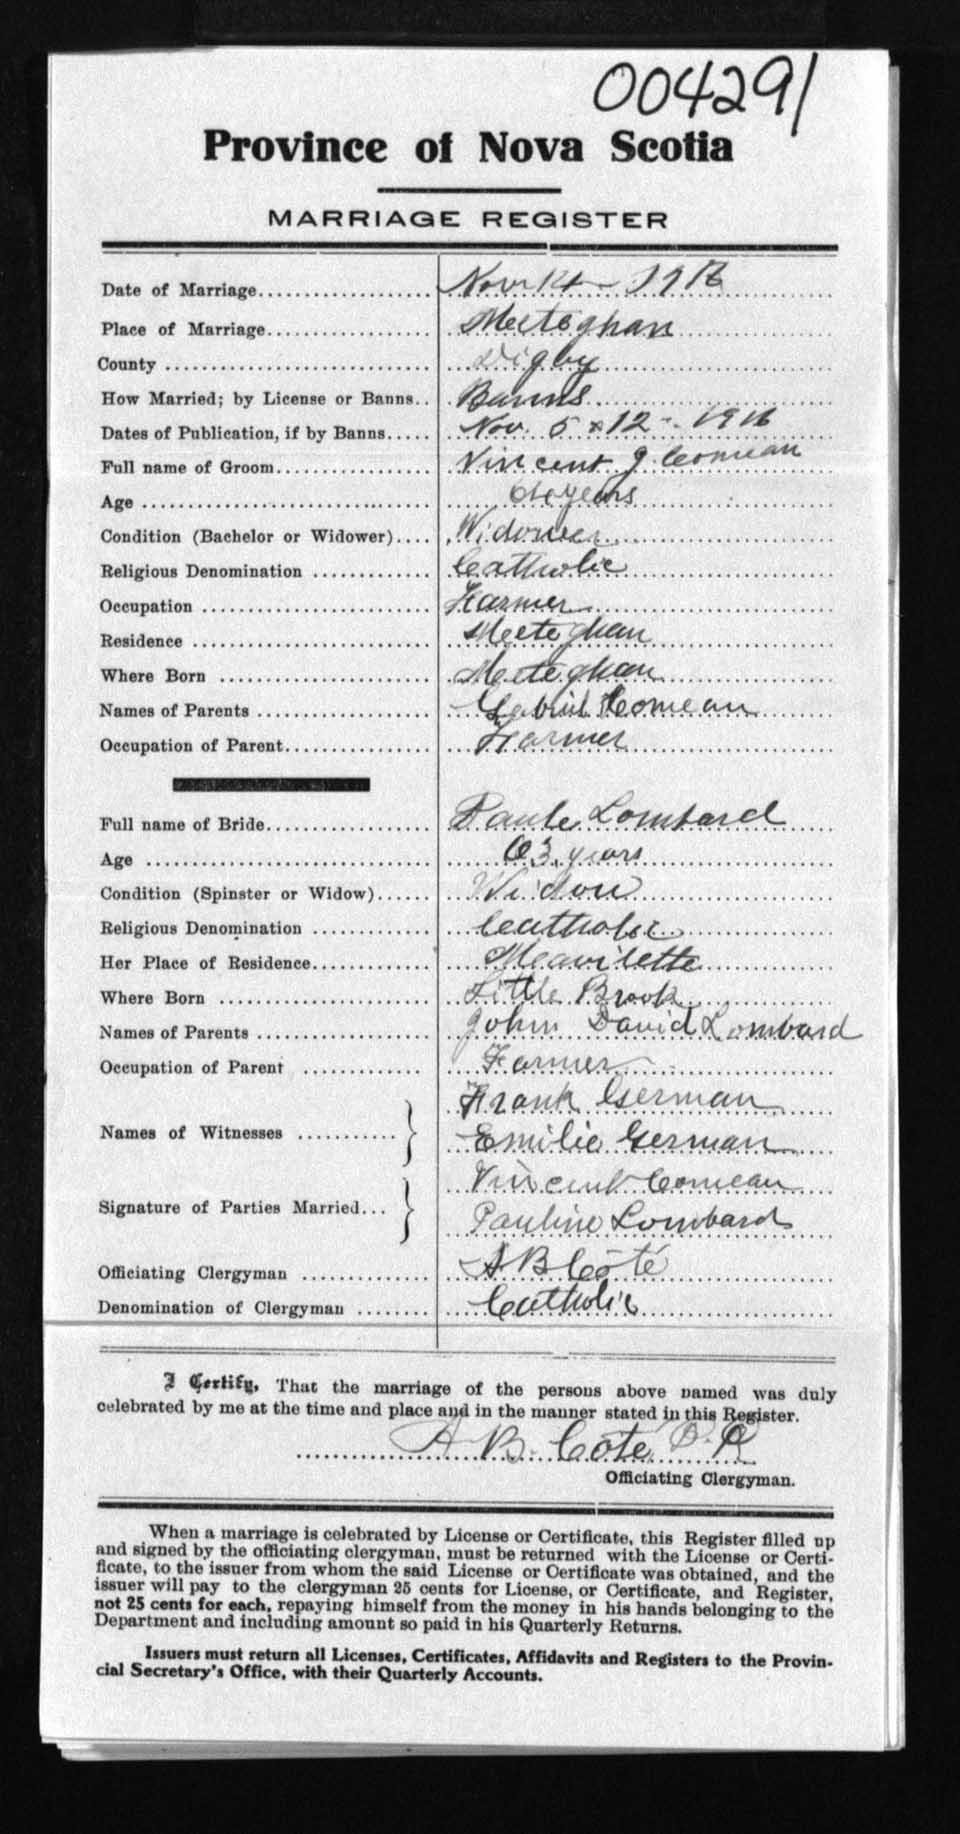 004291
Province of Nova Scotia
MARRIAGE REGISTER
Date of Marriage.................. Nov 14 - 1916
Place of Marriage................. Meteghan
County ............................ Digby
How Married; by License or Banns.. Banns
Dates of Publication, if by Banns..... Nov. 5 & 12 - 1916
Full name of Groom................ Vincent J. Comeau
Age .............................. 64 years
Condition (Bachelor or Widower).... Widower
Religious Denomination ............ Catholic
Occupation ........................ Farmer
Residence ......................... Meteghan
Where Born ....................... Meteghan
Names of Parents .................. Gabriel Comeau
Occupation of Parent............... Farmer
Full name of Bride................. Paule Lombard
Age .............................. 63 years
Condition (Spinster or Widow)...... Widow
Religious Denomination ............ Catholic
Her Place of Residence............ Mavilette
Where Born ....................... Little Brook
Names of Parents .................. John David Lombard
Occupation of Parent ............. Farmer
Frank German
Names of Witnesses ........... } Emilie German
Vincent Comeau
Signature of Parties Married... } Pauline Lombard
Officiating Clergyman ............. A B Côté
Denomination of Clergyman ........ Catholic
I Certify, That the marriage of the persons above named was duly
celebrated by me at the time and place and in the manner stated in this Register.
A. B. Côté P. P.
Officiating Clergyman.
When a marriage is celebrated by License or Certificate, this Register filled up
and signed by the officiating clergyman, must be returned with the License or Certi-
ficate, to the issuer from whom the said License or Certificate was obtained, and the
issuer will pay to the clergyman 25 cents for License, or Certificate, and Register,
not 25 cents for each, repaying himself from the money in his hands belonging to the
Department and including amount so paid in his Quarterly Returns.
Issuers must return all Licenses, Certificates, Affidavits and Registers to the Provin-
cial Secretary's Office, with their Quarterly Accounts.